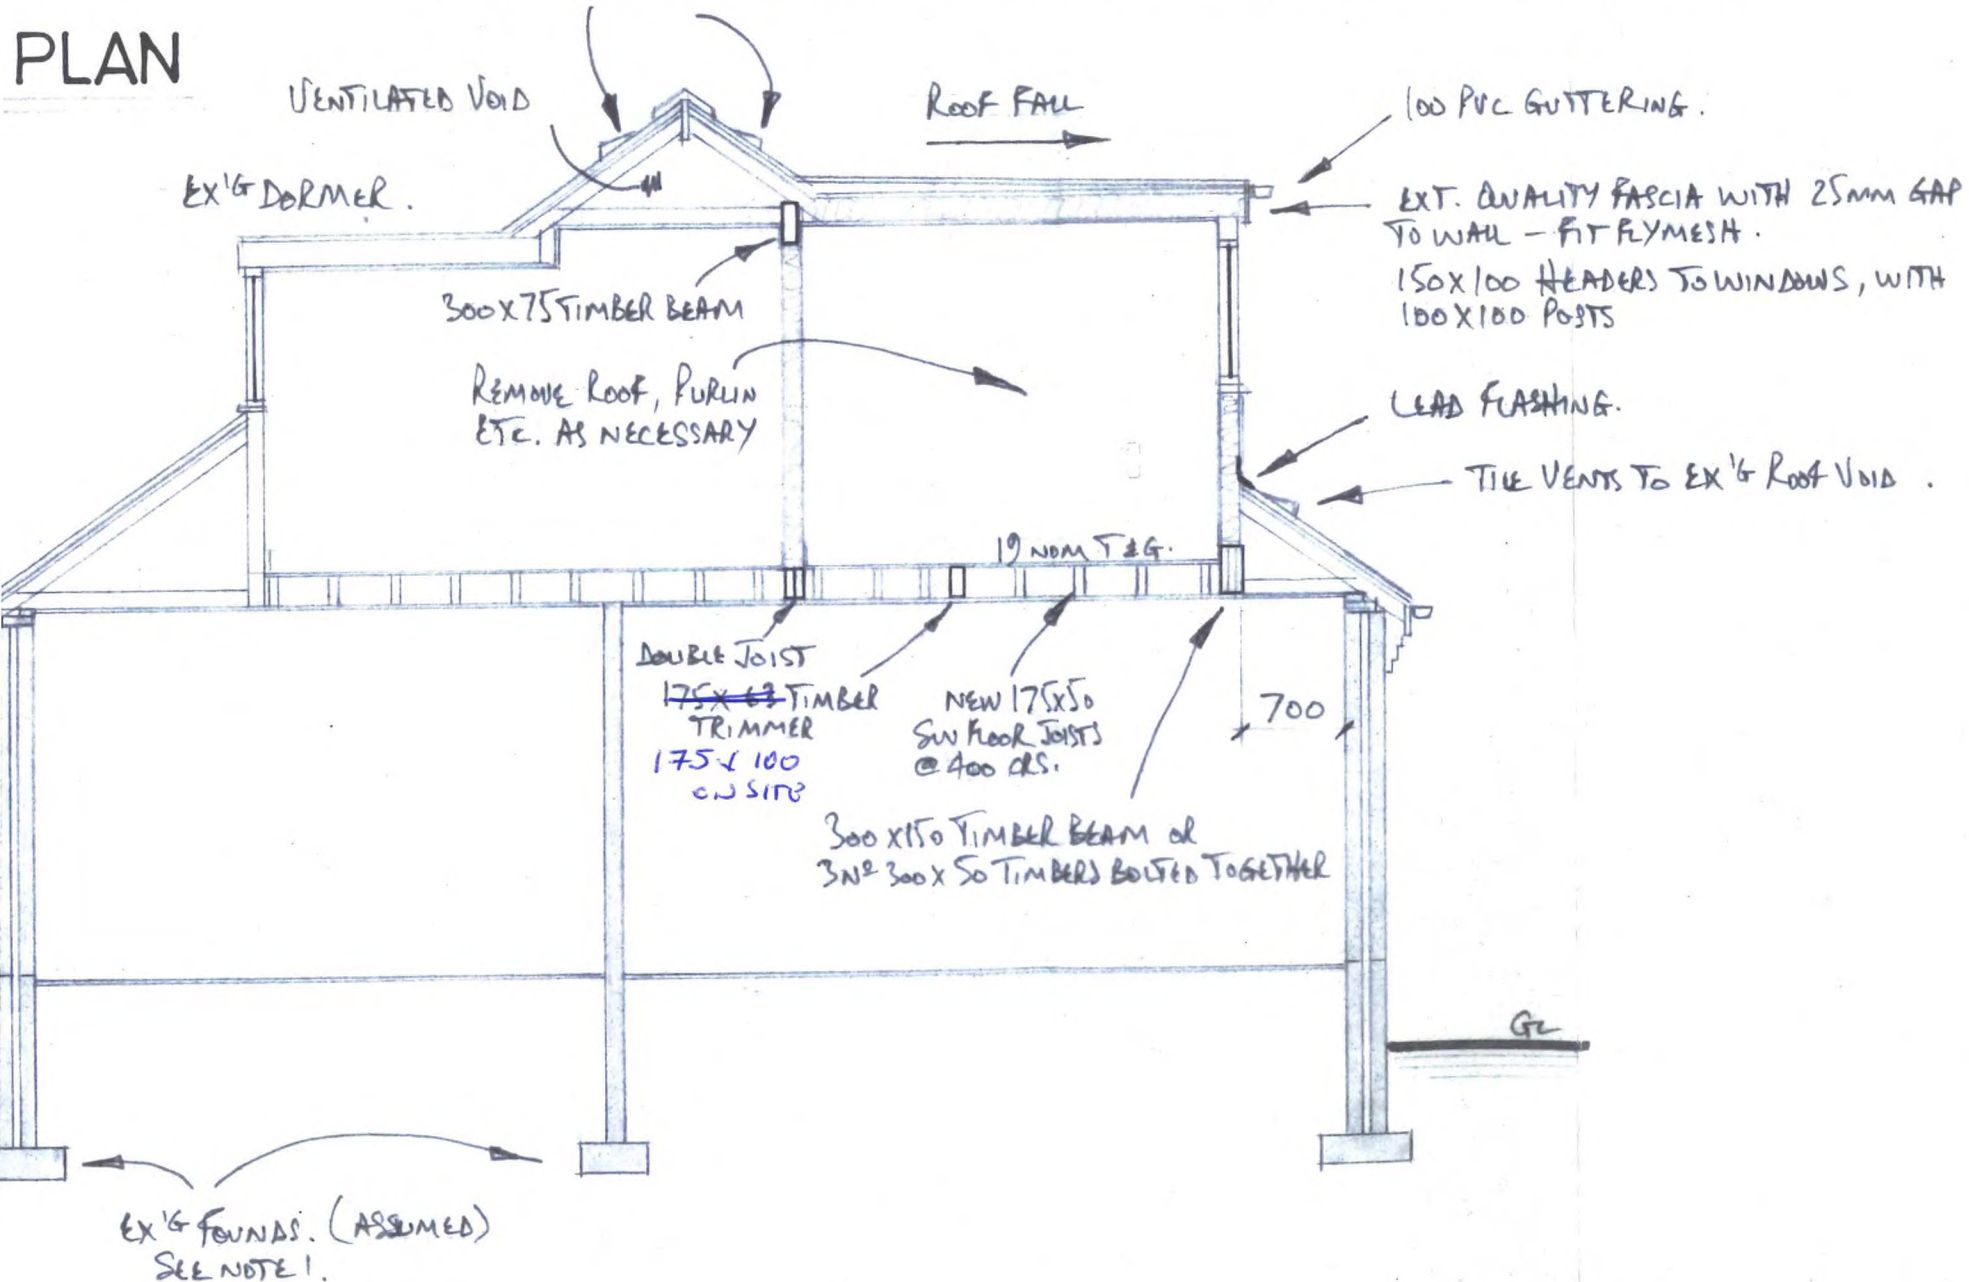 PLAN
VENTILATED VOID
ROOF FALL
100 PVC GUTTERING.
EX'G DORMER.
EXT. QUALITY FASCIA WITH 25MM GAP
TO WALL – FIT FLYMESH.
150X100 HEADERS TO WINDOWS, WITH
100X100 POSTS
300X75 TIMBER BEAM
REMOVE ROOF, PURLIN
ETC. AS NECESSARY
LEAD FLASHING.
TILE VENTS TO EX'G ROOF VOID.
19 NOM T&G.
DOUBLE JOIST
175X63 TIMBER
TRIMMER
175 X 100
ON SITE
NEW 175X50
SW FLOOR JOISTS
@ 400 CRS.
700
300X150 TIMBER BEAM OR
3Nº 300X50 TIMBERS BOLTED TOGETHER
GL
EX'G FOUNDS. (ASSUMED)
SEE NOTE 1.